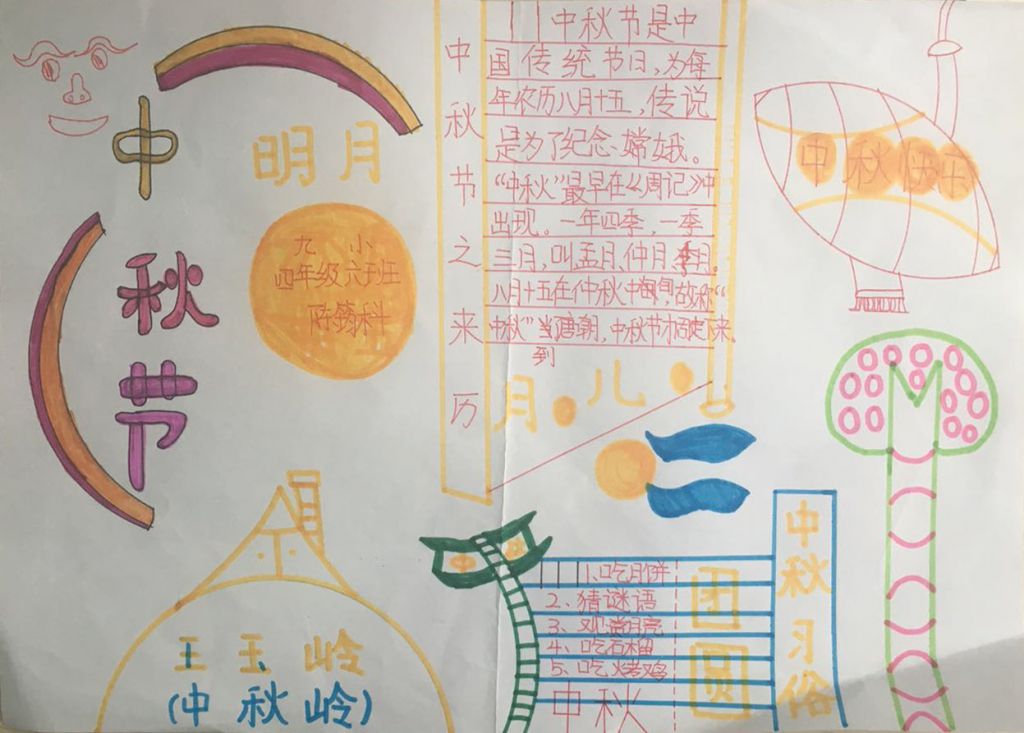 中秋节
明月
九小
四年级六班
中秋节之来历
中秋节是中
国传统节日,为每
年农历八月十五,传说
是为了纪念嫦娥。
“中秋”最早在《周记》中
出现。一年四季,一季
三月,叫孟月、仲月、季月。
八月十五在仲秋中旬,故称“
中秋”当唐朝,中秋节才固定下来。
到
月儿
中秋快乐
中秋
1、吃月饼
2、猜谜语
3、观赏月亮
4、吃石榴
5、吃烤鸡
中秋
团圆
中秋习俗
王玉岭
(中秋岭)